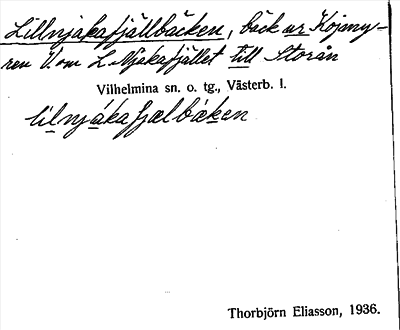 Lillnjakafjällbäcken, bäck ur Kojmy-
ren V. om L. Njakafjället till Storån
Vilhelmina sn. o. tg., Västerb. l.
lilnjákafjælbǽken
Thorbjörn Eliasson, 1936.